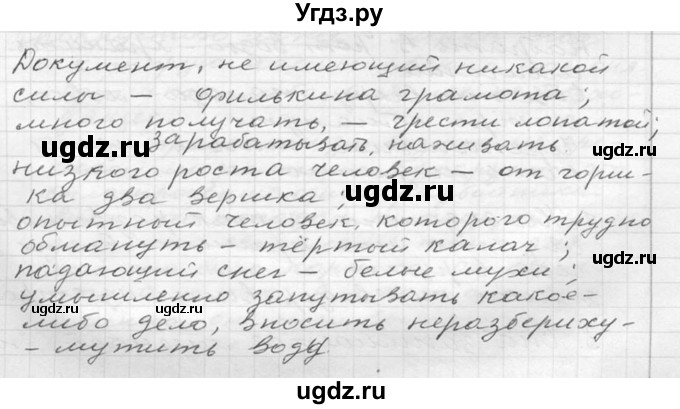 Угдз.ру
Документ, не имеющий никакой
силы – филькина грамота;
много получать, – грести лопатой;
зарабатывать, наживать.
низкого роста человек – от горш-
ка два вершка;
опытный человек, которого трудно
обмануть – тёртый калач;
падающий снег – белые мухи;
умышленно запутывать какое-
либо дело, вносить неразбериху-
- мутить воду
ugdz.ru
ugdz.ru
ugdz.ru
ugdz.ru
ugdz.ru
ugdz.ru
ugdz.ru
ugdz.ru